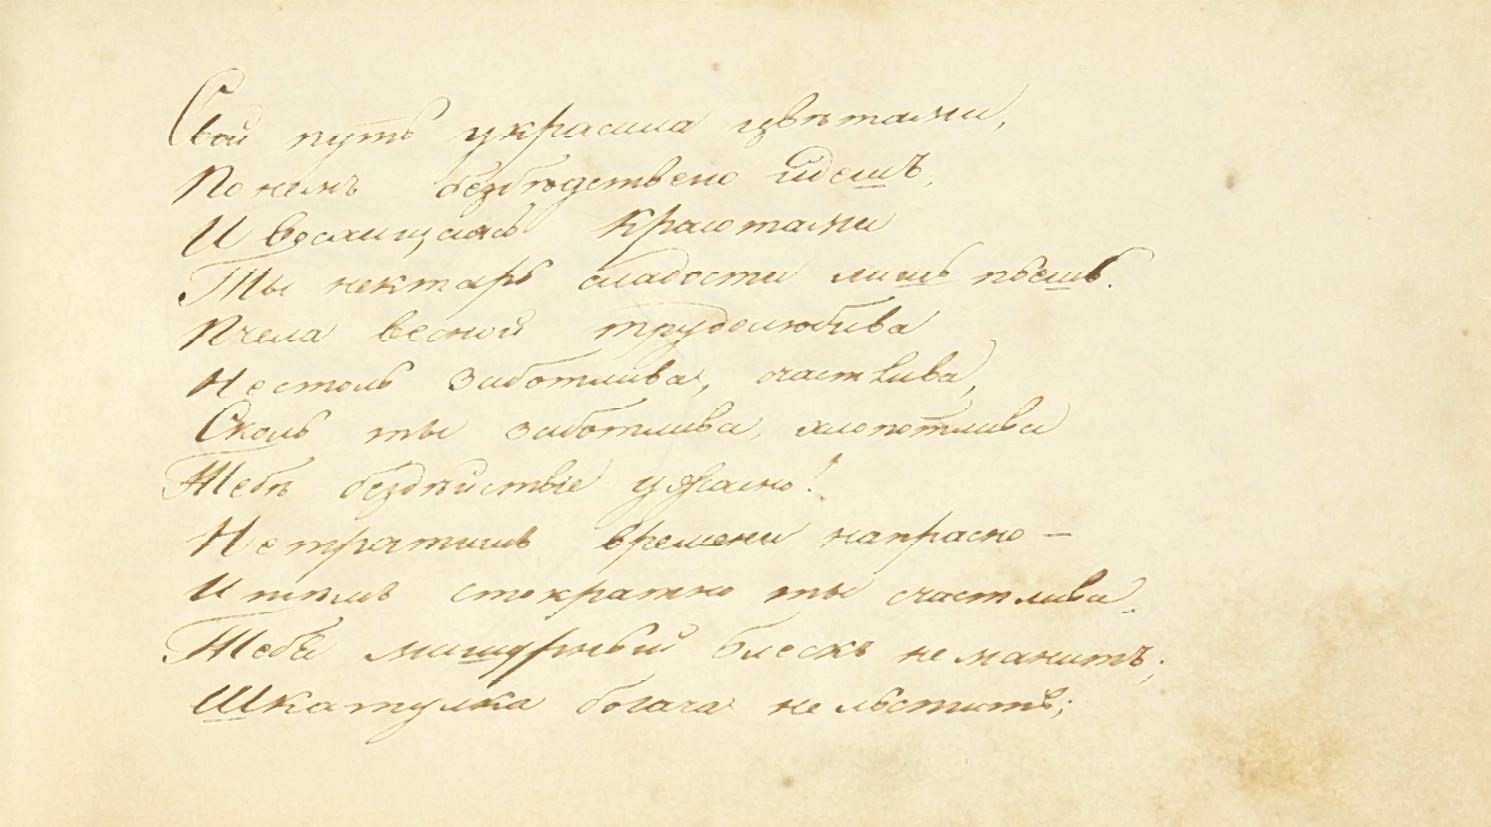 Свой путь украсила цвѣтами,
По немъ безбѣдствено идешъ,
И веселишься красотами
Ты нектарь сладости лишь пьешь.
Пчела весной трудолюбива
Не столь заботлива, счастлива,
Сколь ты заботлива, хлопотлива
Тебѣ бездѣйствіе ужасно!
Не тратишь времени напрасно —
И тѣмъ стократно ты счастлива.
Тебя мишурный блескъ не манитъ;
Шкатулка богача не льститъ;